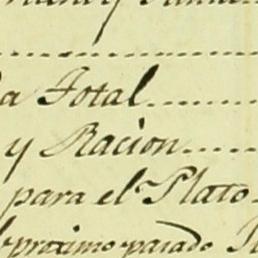 a Total
y Racion
para el Plato
proximo pasado